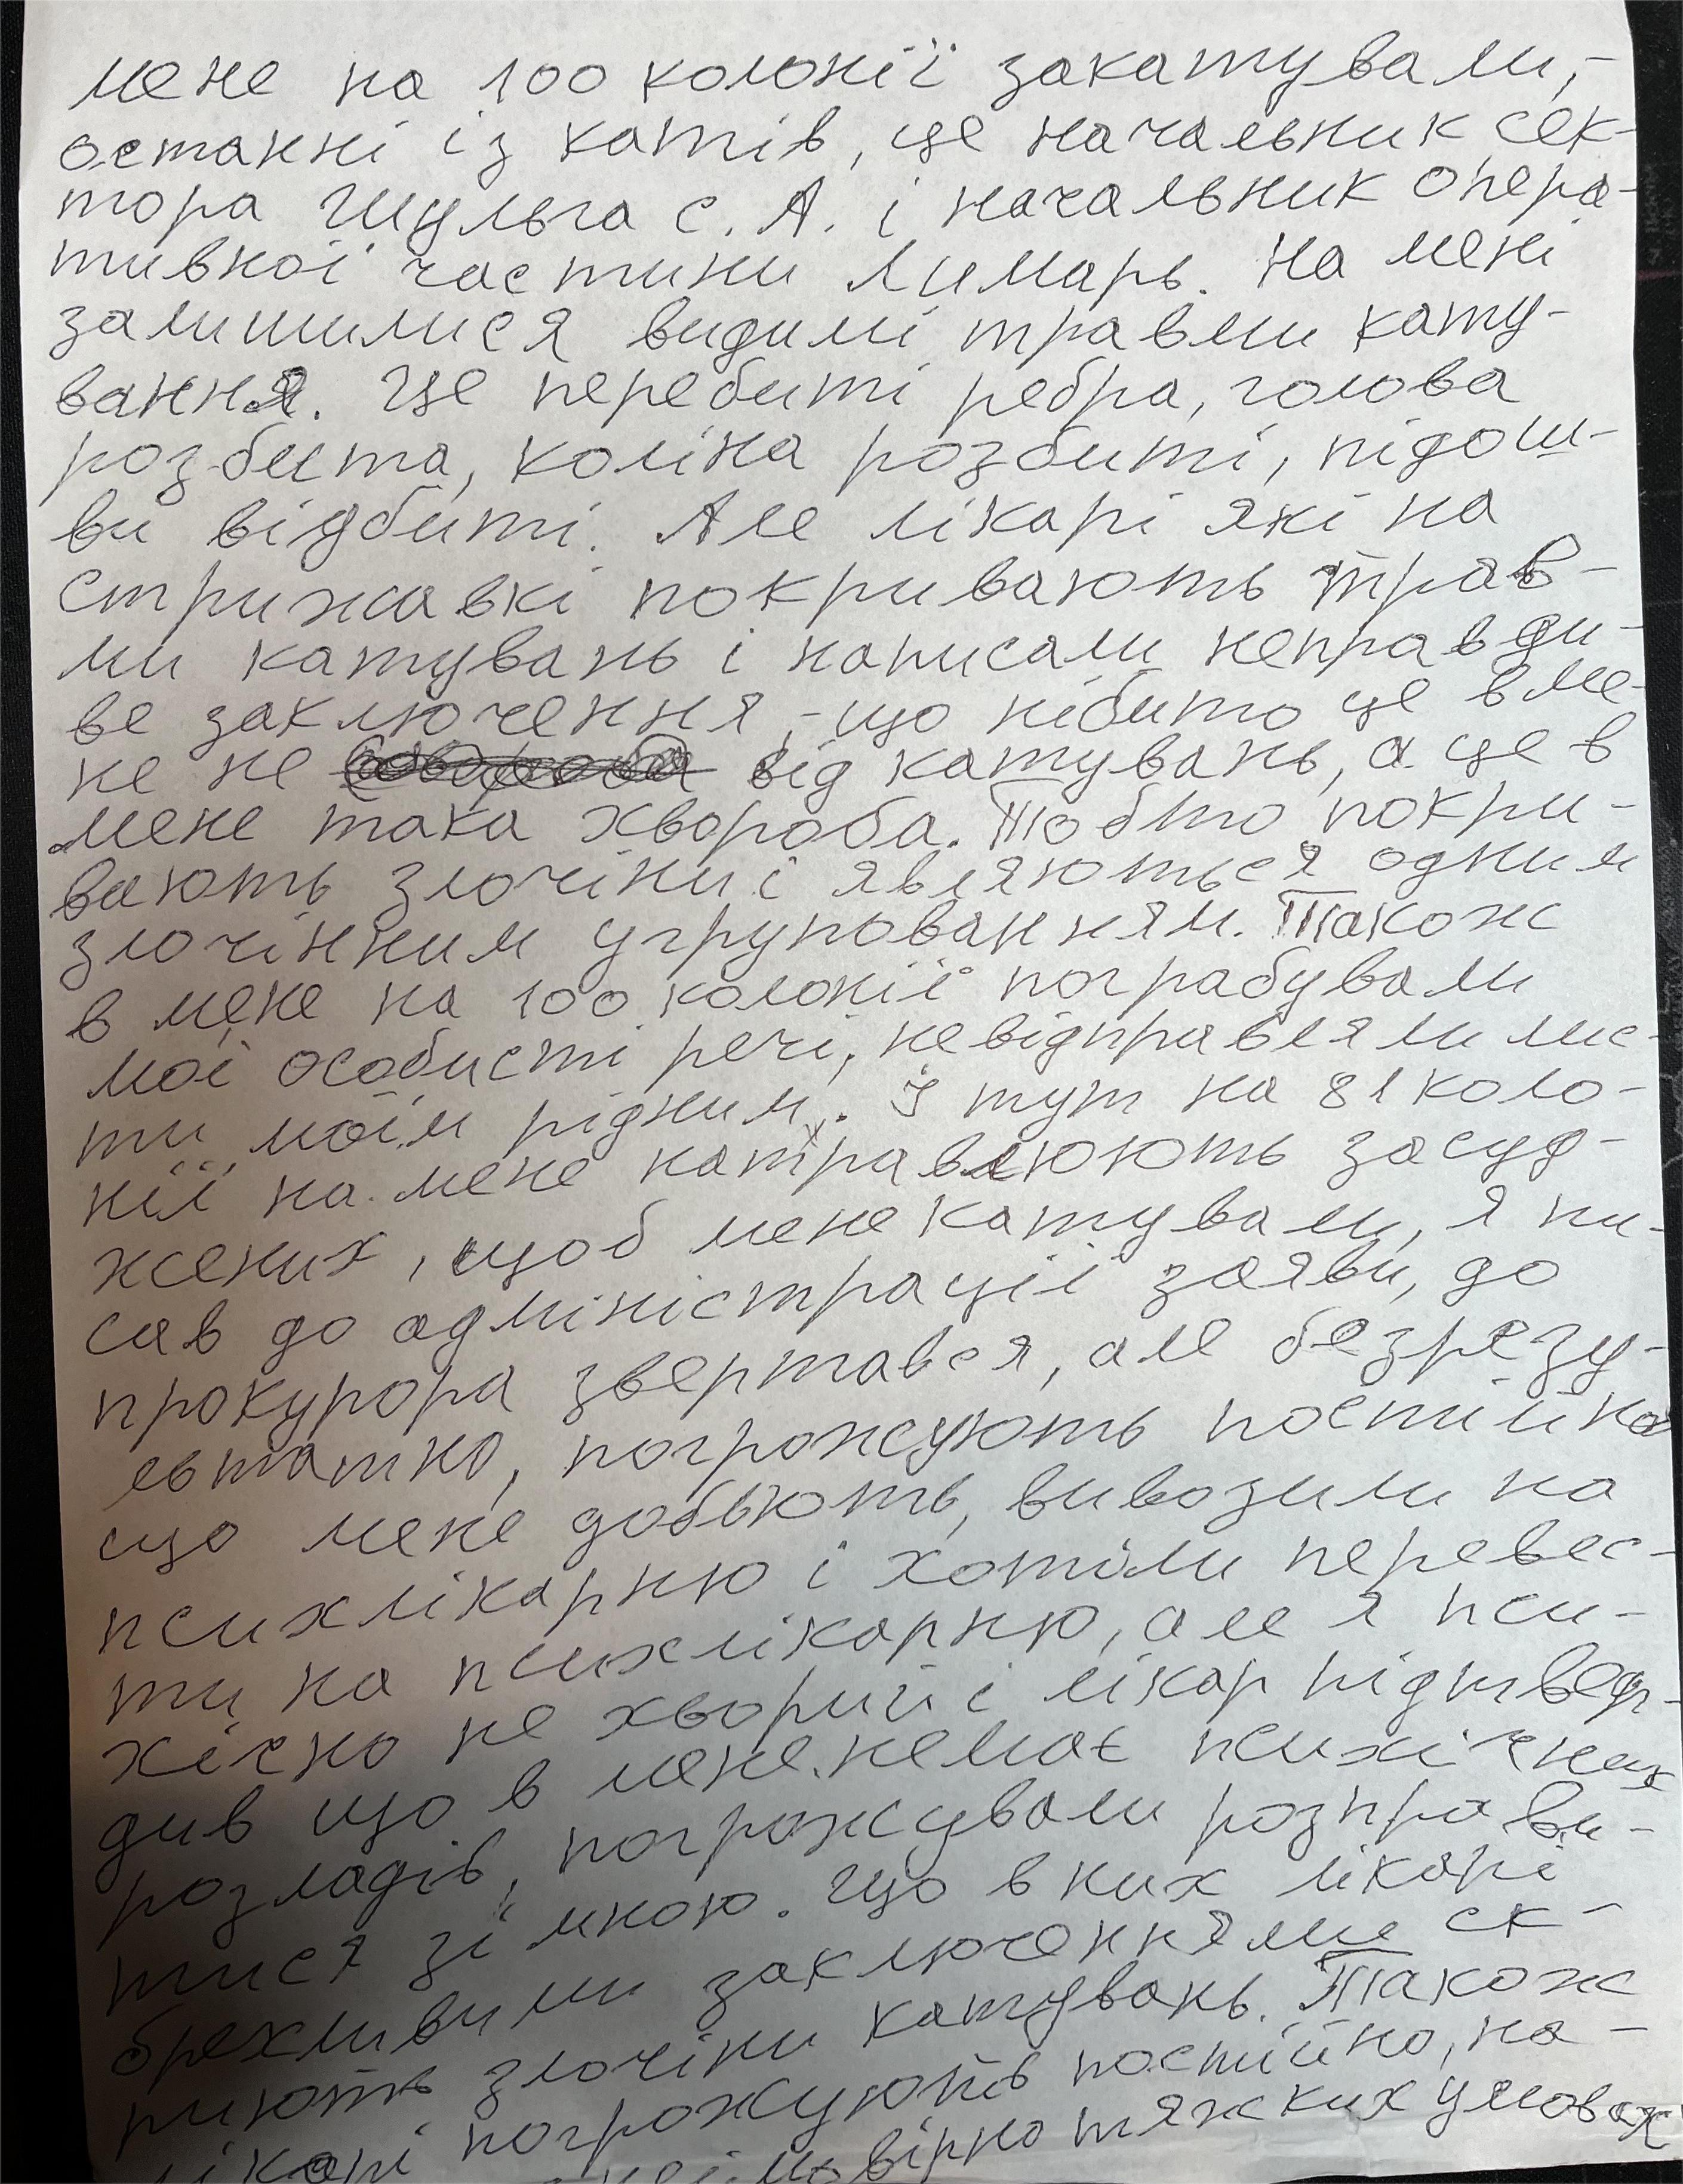 мене на 100 колонії закатували,-
останні із катів, це начальник сек-
тора Шульга С. А. і начальник опера-
тивної частини Лимарь. На мені
залишилися видимі травми кату-
вання. Це перебиті ребра, голова
розбита, коліна розбиті, підош-
ви відбиті. Але лікарі які на
Стрижавкі покривають трав-
ми катувань і написали неправди-
ве заключення,-що нібито це в ме-
не не від катувань, а це в
мене така хвороба. Тобто покри-
вають злочіни і являються одним
злочінним угрупованням. Також
в мене на 100 колонії пограбували
мої особисті речі, невідправляли лис-
ти моїм рідним. І тут на 81 коло-
нії на мене натравлюють засуд-
жених, щоб мене катували, я пи-
сав до адміністрації заяви, до
прокурора звертався, але безрезу-
льтатно, погрожують постійно
що мене добьють, вивозили на
психлікарню і хотіли перевес-
ти на психлікарню, але я пси-
хічно не хворий і лікар підтвер-
див що в мене немає психічних
розладів, погрожували розправи-
тися зі мною. Що в них лікарі
брехливими заключеннями ск-
риють злочіни катувань. Також
лікарі погрожують постійно, на-
тяжких умовах